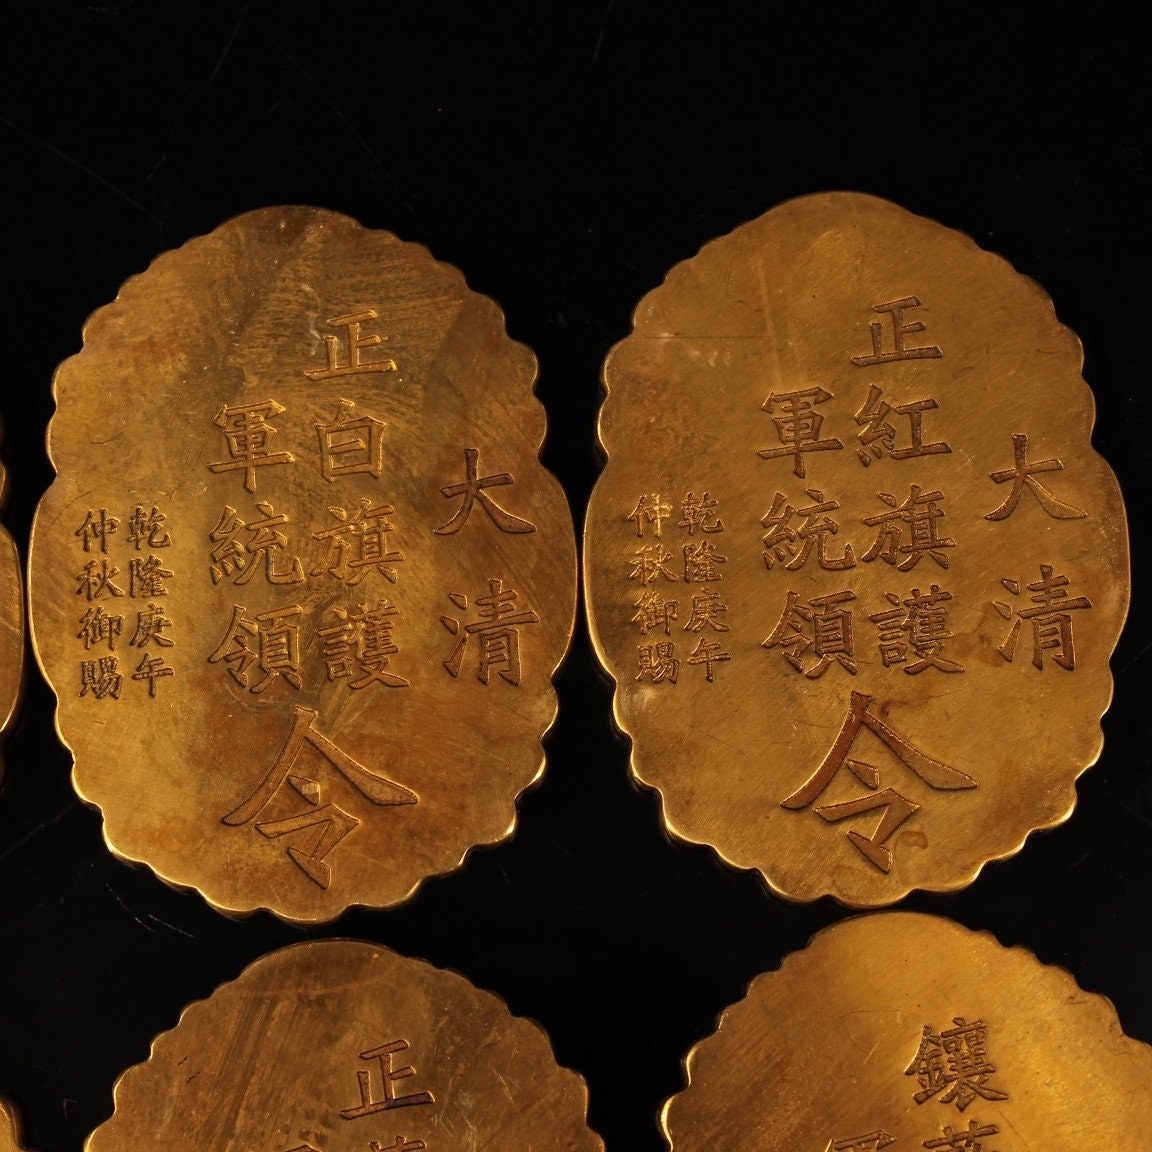 大清
正白旗護
軍統領
令
乾隆庚午
仲秋御賜
大清
正紅旗護
軍統領
令
乾隆庚午
仲秋御賜
正
鑲